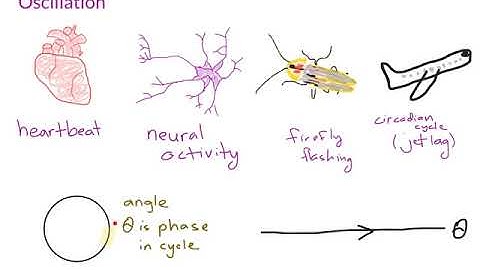 Oscillation
heartbeat
neural
activity
firefly
flashing
circadian
cycle
(jetlag)
angle
θ is phase
in cycle
θ